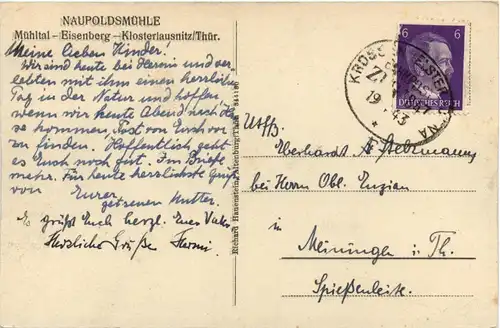 NAUPOLDSMÜHLE
Mühltal - Eisenberg - Klosterlausnitz/Thür.
Meine lieben Kinder!
Wir sind heute bei Hermi und ver-
lebten mit ihm einen herrlichen
Tag in der Natur und hoffen,
wenn wir heute Abend nach
kommen, Post von Euch vor
zu finden. Hoffentlich geht
es Euch noch gut. Im Briefe
mehr. Für heute herzlichste Grüße
von Eurer
getreuen Mutter.
Es grüßt Euch herzl. Euer Vater
Herzliche Grüße Hermi
Richard Hauenstein, Altenburg/Thür.
6 6
DEUTSCHES REICH
KROSSEN
19 43
Uffz.
Eberhardt
bei Herrn Obl. Enzian
in
Meiningen i. Th.
Spießenleite.